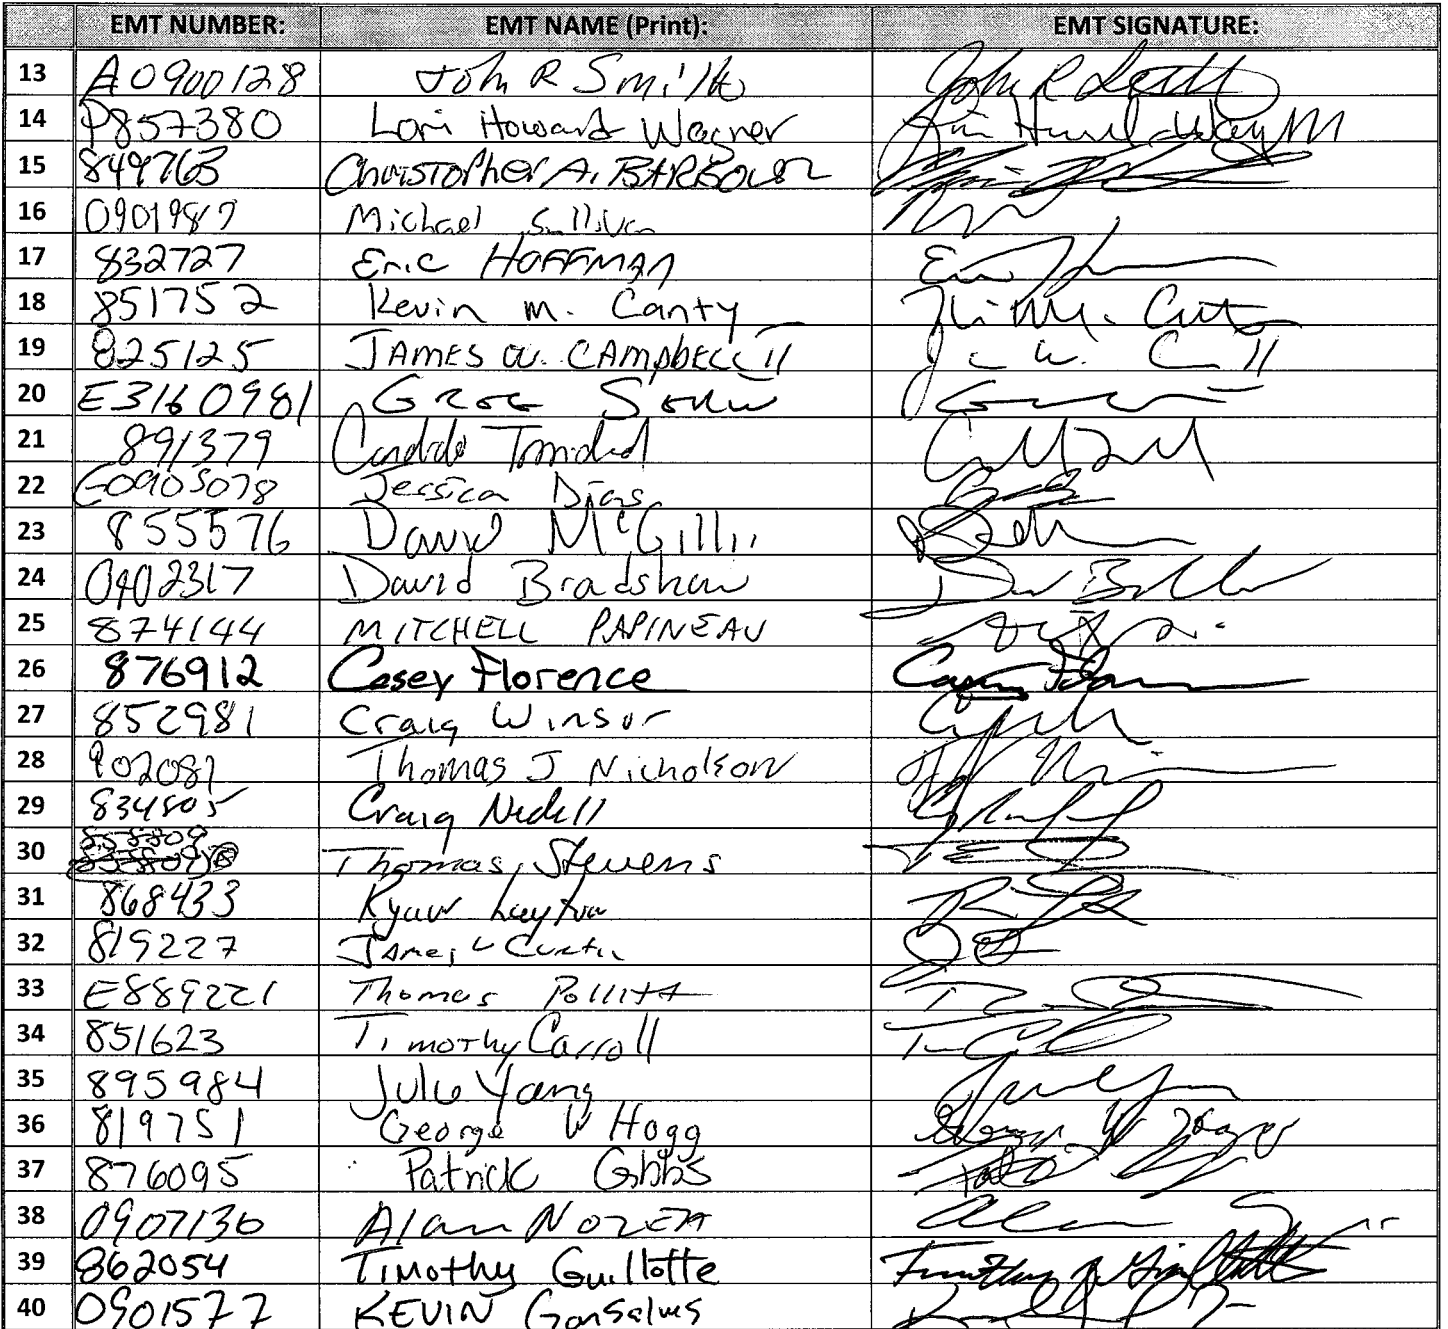 EMT NUMBER: EMT NAME (Print): EMT SIGNATURE:
13 A0900128 John R Smith John R Smith
14 P857380 Lori Howard Wagner
15 849763 Christopher A. BARBOUR
16 0901987 Michael Sullivan
17 832727 Eric HOFFMAN
18 851752 Kevin m. Canty
19 825125 JAMES W. CAMPBELL II
20 E3160981
21 891379 Candido Trinidad
22 E0905078 Jessica Dias
23 855576 David
24 0902317 David Bradshaw
25 874144 MITCHELL PAPINEAU
26 876912 Casey Florence
27 852981 Craig Winsor
28 902081 Thomas J Nicholson
29 834805 Craig Nedell
30 858809 Thomas Stevens
31 868433 Layton
32 819227 James Curtin
33 E889221 Thomas Pollitt
34 851623 Timothy Carroll
35 895984 Julie Yang
36 819751 George W Hogg
37 876095 Patrick Gibbs
38 0907136 Alan
39 862054 Timothy Guillotte
40 0901577 KEVIN Gonsalves